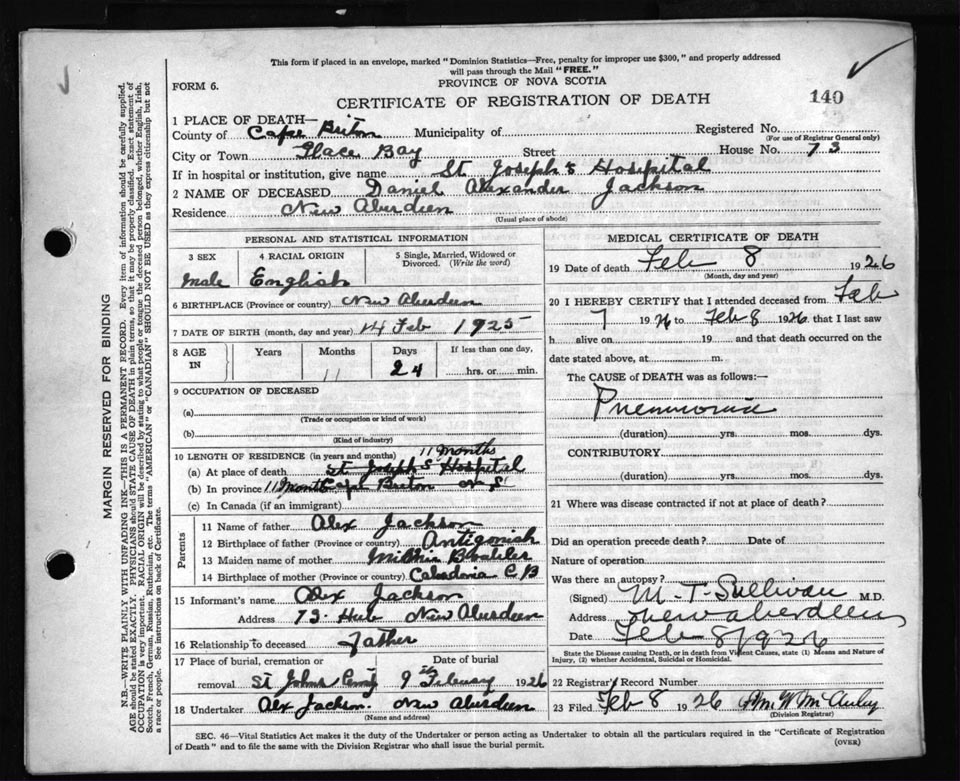 This form if placed in an envelope, marked "Dominion Statistics—Free, penalty for improper use $300," and properly addressed
will pass through the Mail "FREE."
FORM 6.
PROVINCE OF NOVA SCOTIA
CERTIFICATE OF REGISTRATION OF DEATH
140
1 PLACE OF DEATH—
County of Cape Briton Municipality of Registered No.
(For use of Registrar General only)
City or Town Glace Bay Street House No. 73
If in hospital or institution, give name St Joseph's Hosipital
2 NAME OF DECEASED Daniel Alexander Jackson
Residence New Aberdeen
(Usual place of abode)
PERSONAL AND STATISTICAL INFORMATION
3 SEX 4 RACIAL ORIGIN 5 Single, Married, Widowed or Divorced. (Write the word)
male English
6 BIRTHPLACE (Province or country) New Aberdeen
7 DATE OF BIRTH (month, day and year) 14 Feb 1925
8 AGE IN Years Months Days If less than one day,
11 24 hrs. or min.
9 OCCUPATION OF DECEASED
(a)
(Trade or occupation or kind of work)
(b)
(Kind of industry)
10 LENGTH OF RESIDENCE (in years and months) 11 months
(a) At place of death St Joseph S Hospital
(b) In province 11 Mont Cape Breton N S
(c) In Canada (if an immigrant)
Parents
11 Name of father Alex Jackson
12 Birthplace of father (Province or country) Antigonish
13 Maiden name of mother
14 Birthplace of mother (Province or country) Caledonia C B
15 Informant's name Alex Jackson
Address 73 Hub New Aberdeen
16 Relationship to deceased Father
17 Place of burial, cremation or removal Date of burial
St Johns 9 February 1926
18 Undertaker Alex Jackson. New Aberdeen
(Name and address)
MEDICAL CERTIFICATE OF DEATH
19 Date of death Feb 8 1926
(Month, day and year)
20 I HEREBY CERTIFY that I attended deceased from Feb
7 1926 to Feb 8 1926 that I last saw
h alive on 19 and that death occurred on the
date stated above, at m.
The CAUSE OF DEATH was as follows:—
Pneumonia
(duration) yrs. mos. dys.
CONTRIBUTORY
(duration) yrs. mos. dys.
21 Where was disease contracted if not at place of death?
Did an operation precede death? Date of
Nature of operation
Was there an autopsy?
(Signed) M. T. Sullivan M.D.
Address New Aberdeen
Date Feb 8/1926
State the Disease causing Death, or in death from Violent Causes, state (1) Means and Nature of
Injury, (2) whether Accidental, Suicidal or Homicidal.
22 Registrar's Record Number
23 Filed Feb 8 1926 McAuley
(Division Registrar)
SEC. 46—Vital Statistics Act makes it the duty of the Undertaker or person acting as Undertaker to obtain all the particulars required in the "Certificate of Registration
of Death" and to file the same with the Division Registrar who shall issue the burial permit.
(OVER)
MARGIN RESERVED FOR BINDING
N.B.—WRITE PLAINLY, WITH UNFADING INK—THIS IS A PERMANENT RECORD. Every item of information should be carefully supplied.
AGE should be stated EXACTLY. PHYSICIANS should STATE CAUSE OF DEATH in plain terms, so that it may be properly classified. Exact statement of
OCCUPATION is very important. RACIAL ORIGIN will be described by stating to what people or tongue the deceased person belonged, whether English, Irish,
Scotch, French, German, Russian, Ruthenian, etc. The terms "AMERICAN" or "CANADIAN" SHOULD NOT BE USED as they express citizenship but not
a race or people. See instructions on back of Certificate.